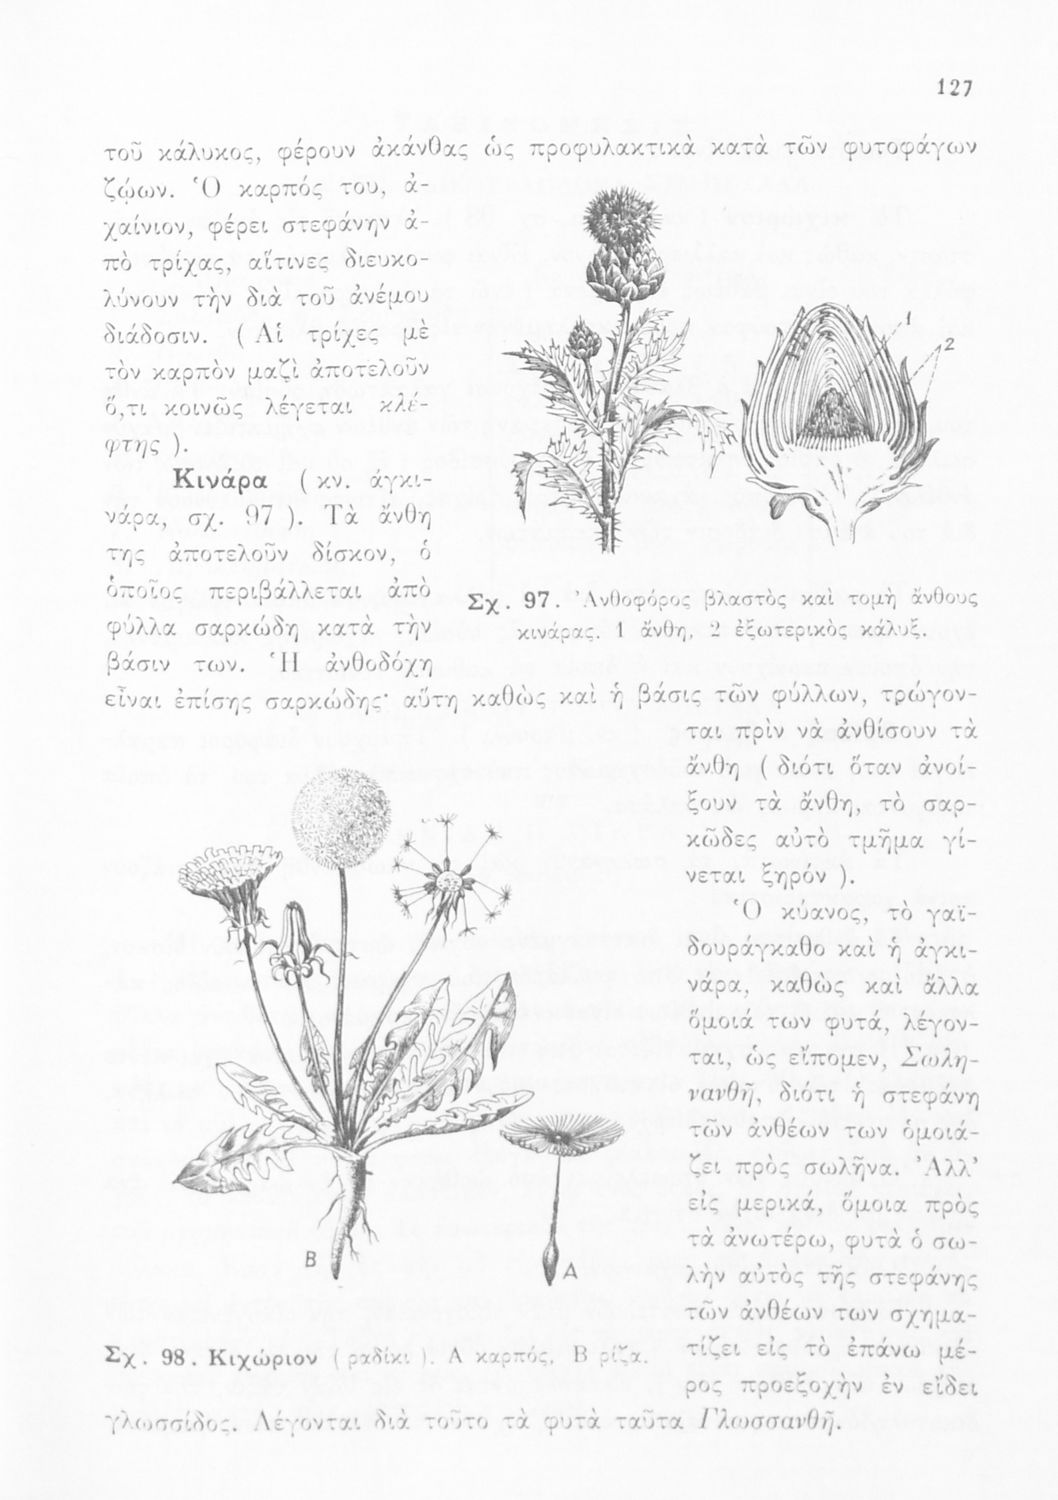 127
τοῦ κάλυκος, φέρουν ἀκάνθας ὡς προφυλακτικὰ κατὰ τῶν φυτοφάγων
ζῴων. Ὁ καρπός του, ἀ-
χαίνιον, φέρει στεφάνην ἀ-
πὸ τρίχας, αἵτινες διευκο-
λύνουν τὴν διὰ τοῦ ἀνέμου
διάδοσιν. ( Αἱ τρίχες μὲ
τὸν καρπὸν μαζὶ ἀποτελοῦν
ὅ,τι κοινῶς λέγεται κλέ-
φτης ).
Κινάρα ( κν. ἀγκι-
νάρα, σχ. 97 ). Τὰ ἄνθη
της ἀποτελοῦν δίσκον, ὁ
ὁποῖος περιβάλλεται ἀπὸ
φύλλα σαρκώδη κατὰ τὴν
βάσιν των. Ἡ ἀνθοδόχη
1
2
Σχ. 97. Ἀνθοφόρος βλαστὸς καὶ τομὴ ἄνθους
κινάρας. 1 ἄνθη, 2 ἐξωτερικὸς κάλυξ.
εἶναι ἐπίσης σαρκώδης· αὕτη καθὼς καὶ ἡ βάσις τῶν φύλλων, τρώγον-
ται πρὶν νὰ ἀνθίσουν τὰ
ἄνθη ( διότι ὅταν ἀνοί-
ξουν τὰ ἄνθη, τὸ σαρ-
κῶδες αὐτὸ τμῆμα γί-
νεται ξηρόν ).
Ὁ κύανος, τὸ γαϊ-
δουράγκαθο καὶ ἡ ἀγκι-
νάρα, καθὼς καὶ ἄλλα
ὅμοιά των φυτά, λέγον-
ται, ὡς εἴπομεν, Σωλη-
νανθῆ, διότι ἡ στεφάνη
τῶν ἀνθέων των ὁμοιά-
ζει πρὸς σωλῆνα. Ἀλλ’
εἰς μερικά, ὅμοια πρὸς
τὰ ἀνωτέρω, φυτὰ ὁ σω-
λὴν αὐτὸς τῆς στεφάνης
τῶν ἀνθέων των σχημα-
τίζει εἰς τὸ ἐπάνω μέ-
ρος προεξοχὴν ἐν εἴδει
B
A
Σχ. 98. Κιχώριον ( ραδίκι ). Α καρπός, Β ρίζα.
γλωσσίδος. Λέγονται διὰ τοῦτο τὰ φυτὰ ταῦτα Γλωσσανθῆ.